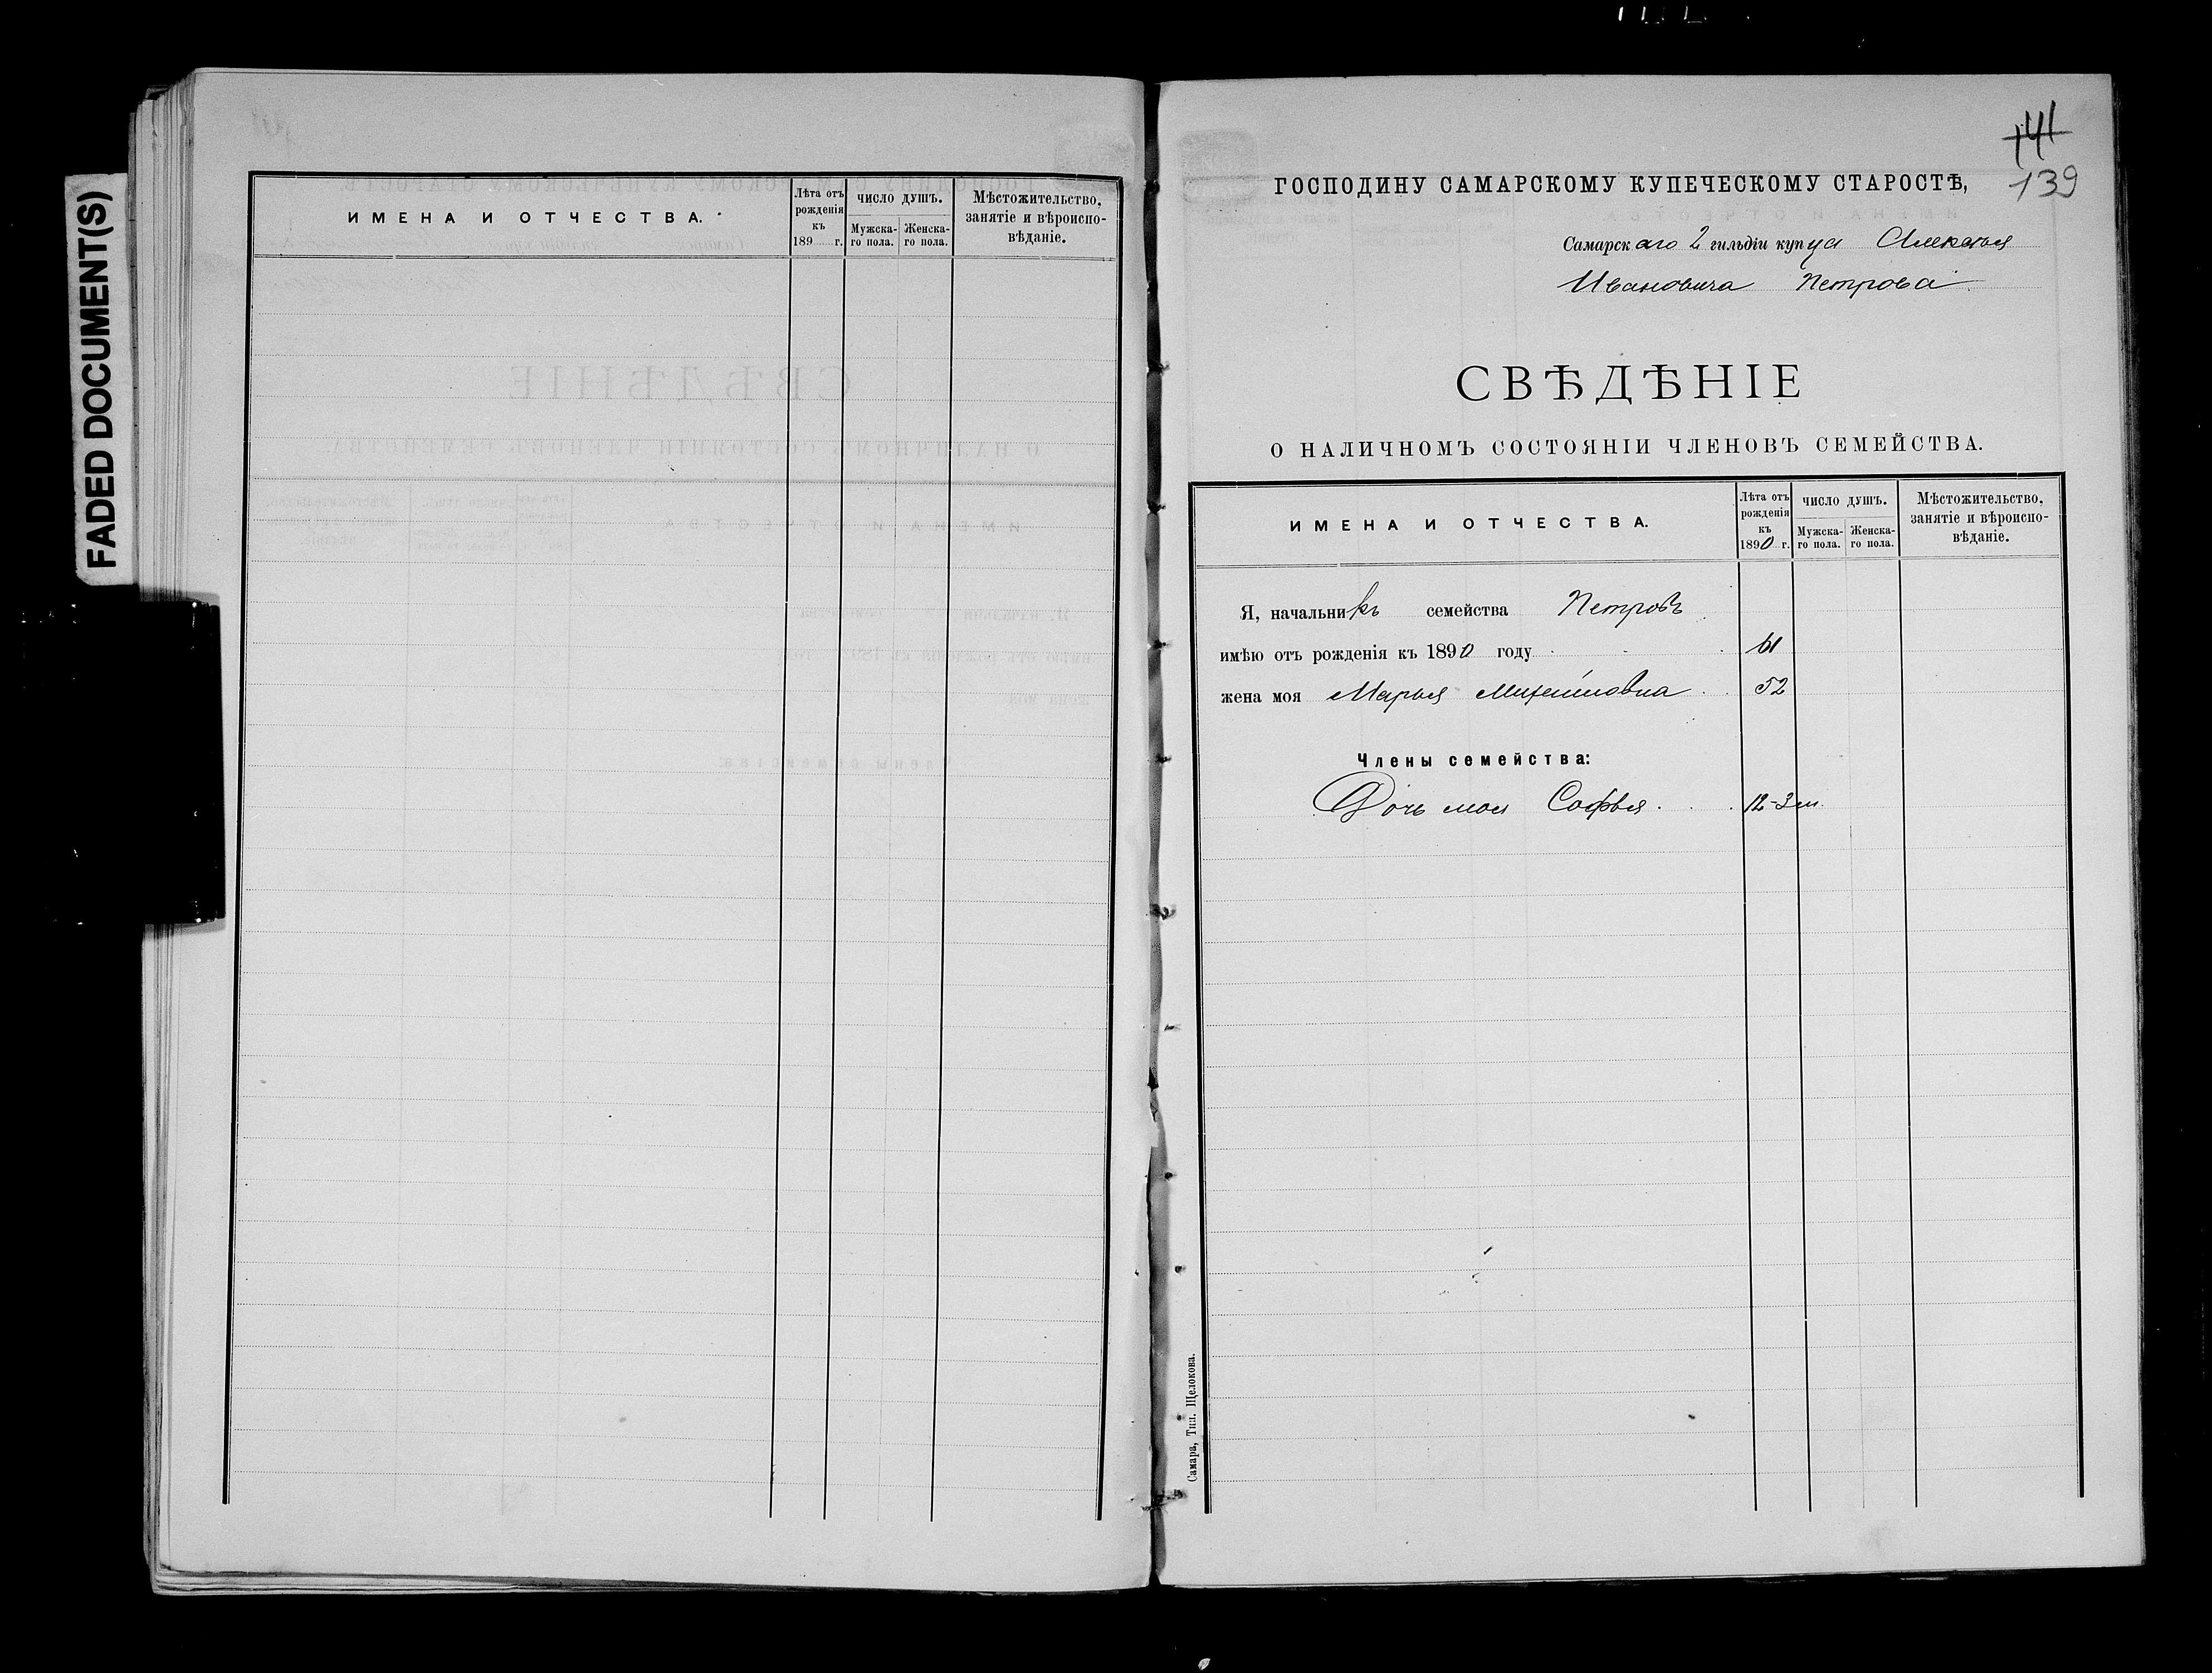 FADED DOCUMENT(S)
ИМЕНА И ОТЧЕСТВА.
Лѣта отъ рожденія къ 189 г.
ЧИСЛО ДУШЪ.
Мужска-го пола.
Женска-го пола.
Мѣстожительство, занятіе и вѣроиспо-вѣданіе.
141
139
ГОСПОДИНУ САМАРСКОМУ КУПЕЧЕСКОМУ СТАРОСТѢ,
Самарскаго 2 гильдіи купца Алексѣя
Ивановича Петрова
СВѢДѢНІЕ
О НАЛИЧНОМЪ СОСТОЯНІИ ЧЛЕНОВЪ СЕМЕЙСТВА.
ИМЕНА И ОТЧЕСТВА.
Лѣта отъ рожденія къ 1890 г.
ЧИСЛО ДУШЪ.
Мужска-го пола.
Женска-го пола.
Мѣстожительство, занятіе и вѣроиспо-вѣданіе.
Я, начальникъ семейства Петровъ
имѣю отъ рожденія къ 1890 году 61
жена моя Марья Михайловна 52
Члены семейства:
Дочь моя Софья 12-3 м.
Самара, Тип. Щелокова.